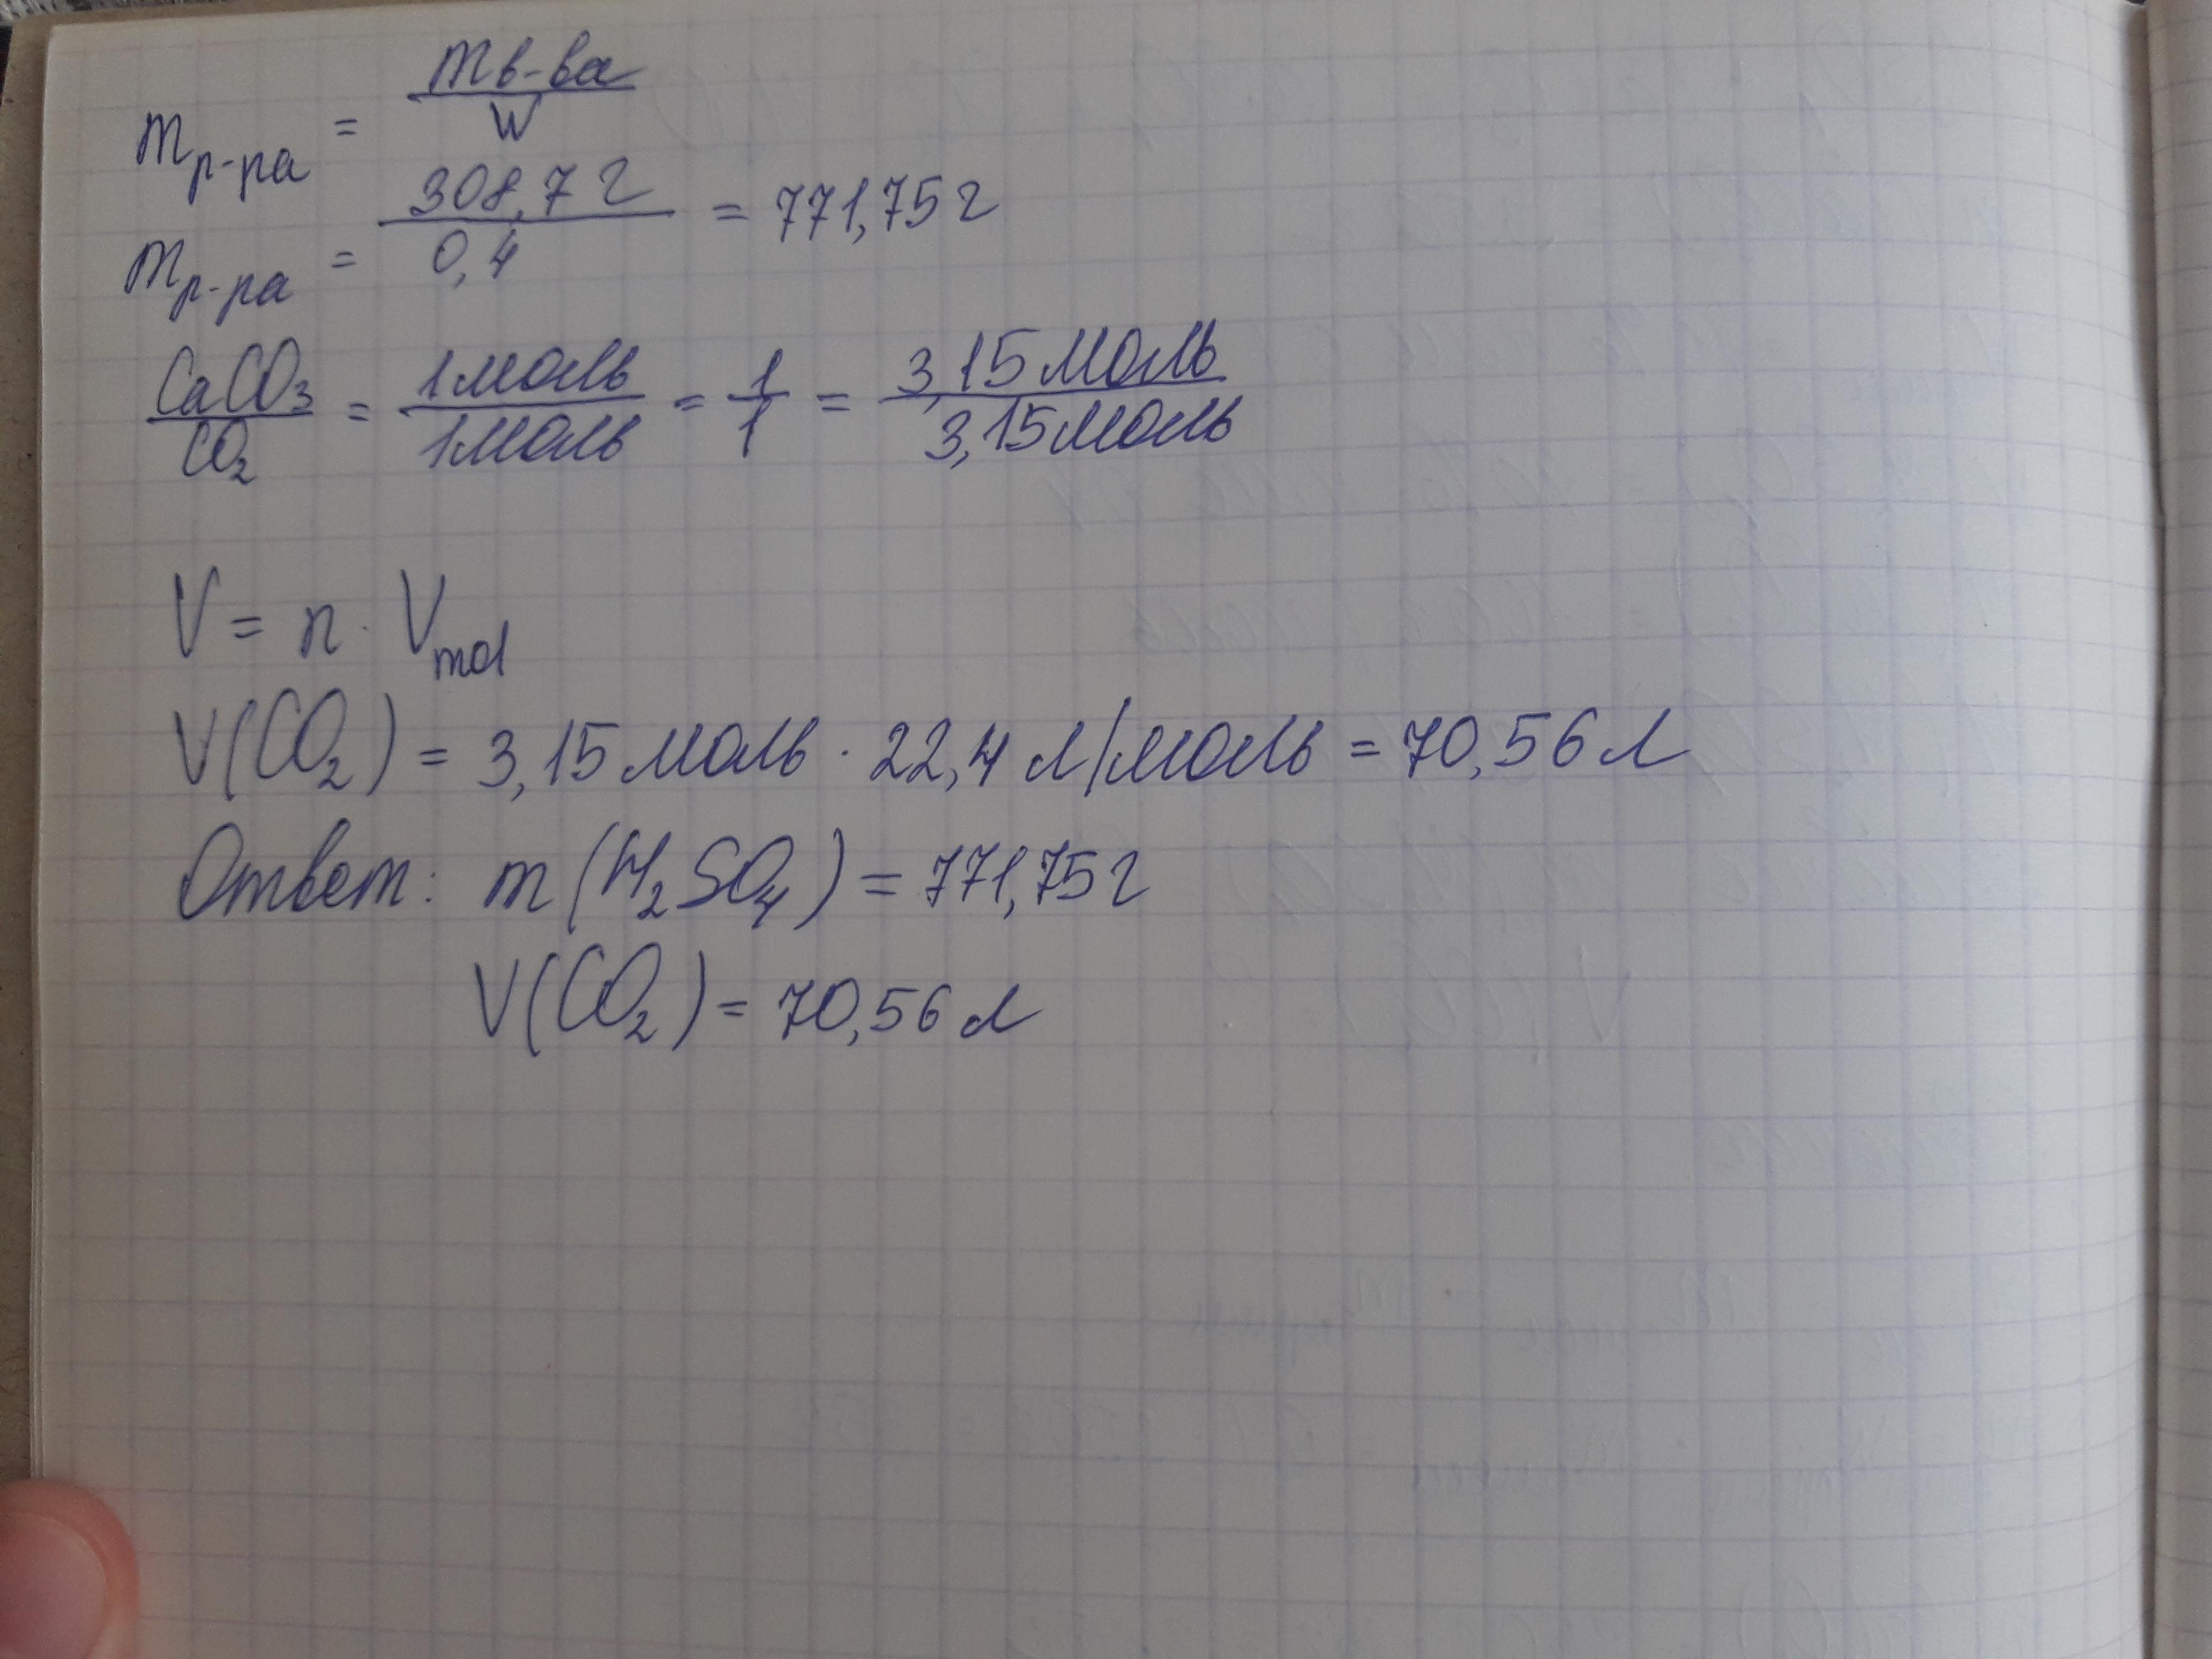 m р-ра = m в-ва / W
m р-ра = 308,7 г / 0,4 = 771,75 г
CaCO₃ / CO₂ = 1 моль / 1 моль = 1 / 1 = 3,15 моль / 3,15 моль
V = n · Vmol
V(CO₂) = 3,15 моль · 22,4 л/моль = 70,56 л
Ответ: m(H₂SO₄) = 771,75 г
V(CO₂) = 70,56 л